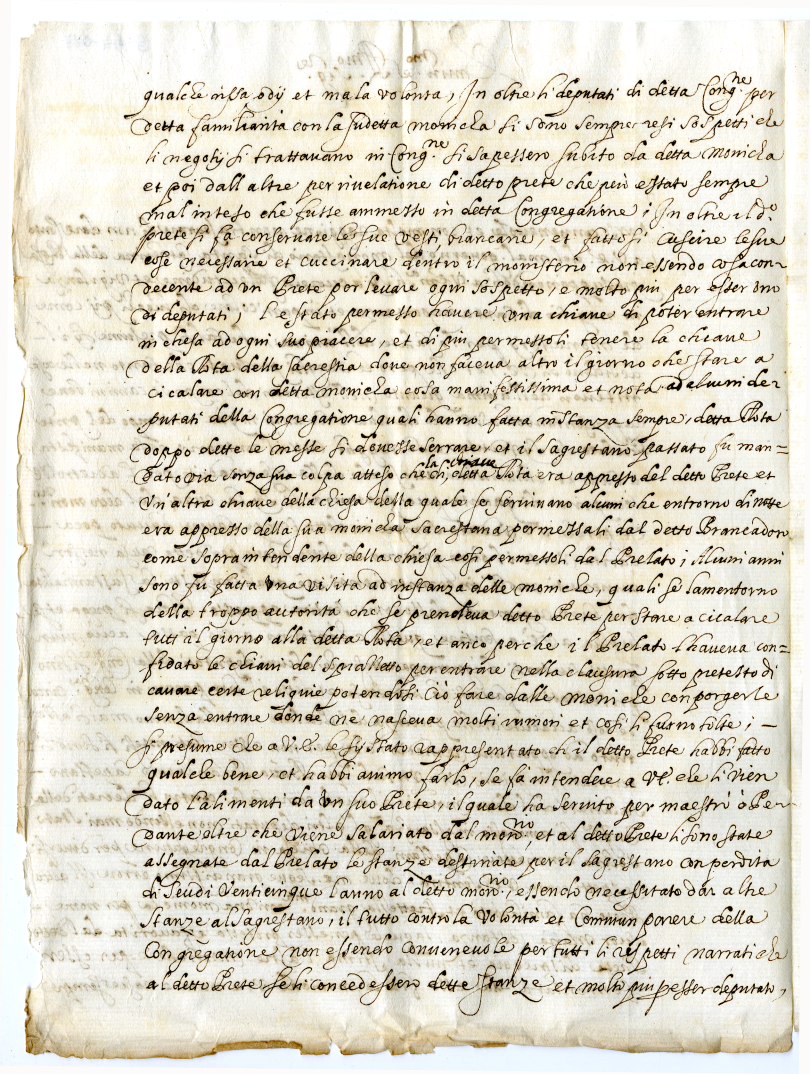 qualche rissa, odij et mala volonta, In oltre li deputati di detta Cong.ne per
detta familiarità con la sudetta monicha si sono sempre resi sospetti che
li negotij si trattavano in Cong.ne si sapessero subito da detta monicha
et poi dall altre per rivelatione di detto prete che però è stato sempre
mal inteso che fusse ammesso in detta Congregatione; In oltre il d.o
prete si fà conservare le sue vesti, biancarie, et fattosi cuscire le sue
cose necessarie et cuccinare dentro il monisterio non essendo cosa con-
decente ad un Prete per levare ogni sospetto, e molto più per esser uno
di deputati; l'è stato permesso havere una chiave di poter entrare
in chiesa ad ogni suo piacere, et di più permessoli tenere la chiave
della Rota della sacrestia dove non faceva altro il giorno che stare a
cicalare con detta monicha cosa manifestissima et nota ad alcuni de-
putati della Congregatione quali hanno fatta instanza sempre, detta Rota
doppo dette le messe si dovesse serrare, et il sagrestano passato fu man=
dato via senza sua colpa atteso che la chiave di detta Rota era appresso del detto Prete et
un'altra chiave della chiesa della quale se servivano alcuni che entrorno di notte
era appresso della sua monicha sacrestana permessali dal detto Brancadoro
come sopraintendente della chiesa così permessoli dal Prelato; Alcuni anni
sono fu fatta una visita ad instanza delle moniche, quali se lamentorno
della troppo autorità che se prendeva detto Prete per stare a cicalare
tutti il giorno alla detta Rota, et anco perche il Prelato l'haveva con=
fidato le chiavi del per entrare nella clausura sotto pretesto di
cavare certe reliquie potendosi ciò fare dalle moniche con porgerle
senza entrare donde ne nasceva molti rumori et così li furno tolte; –
si presume che a V.E. le sij stato rappresentato ch il detto Prete habbi fatto
qualche bene, et habbi animo farlo, se fà intendere a VE. che li vien
dato l'alimenti da un suo Prete, il quale ha servito per maestro ò Pe-
dante oltre che viene salariato dal mon.rio, et al detto Prete li sono state
assegnate dal Prelato le stanze destinate per il sagrestano con perdita
di scudi venticinque l'anno al detto mon.rio, essendo necessitato dar altre
stanze al sagrestano, il tutto contro la volontà et commun parere della
Congregatione non essendo convenevole per tutti li rispetti narrati che
al detto Prete se li concedessero dette stanze et molto più per esser deputato,